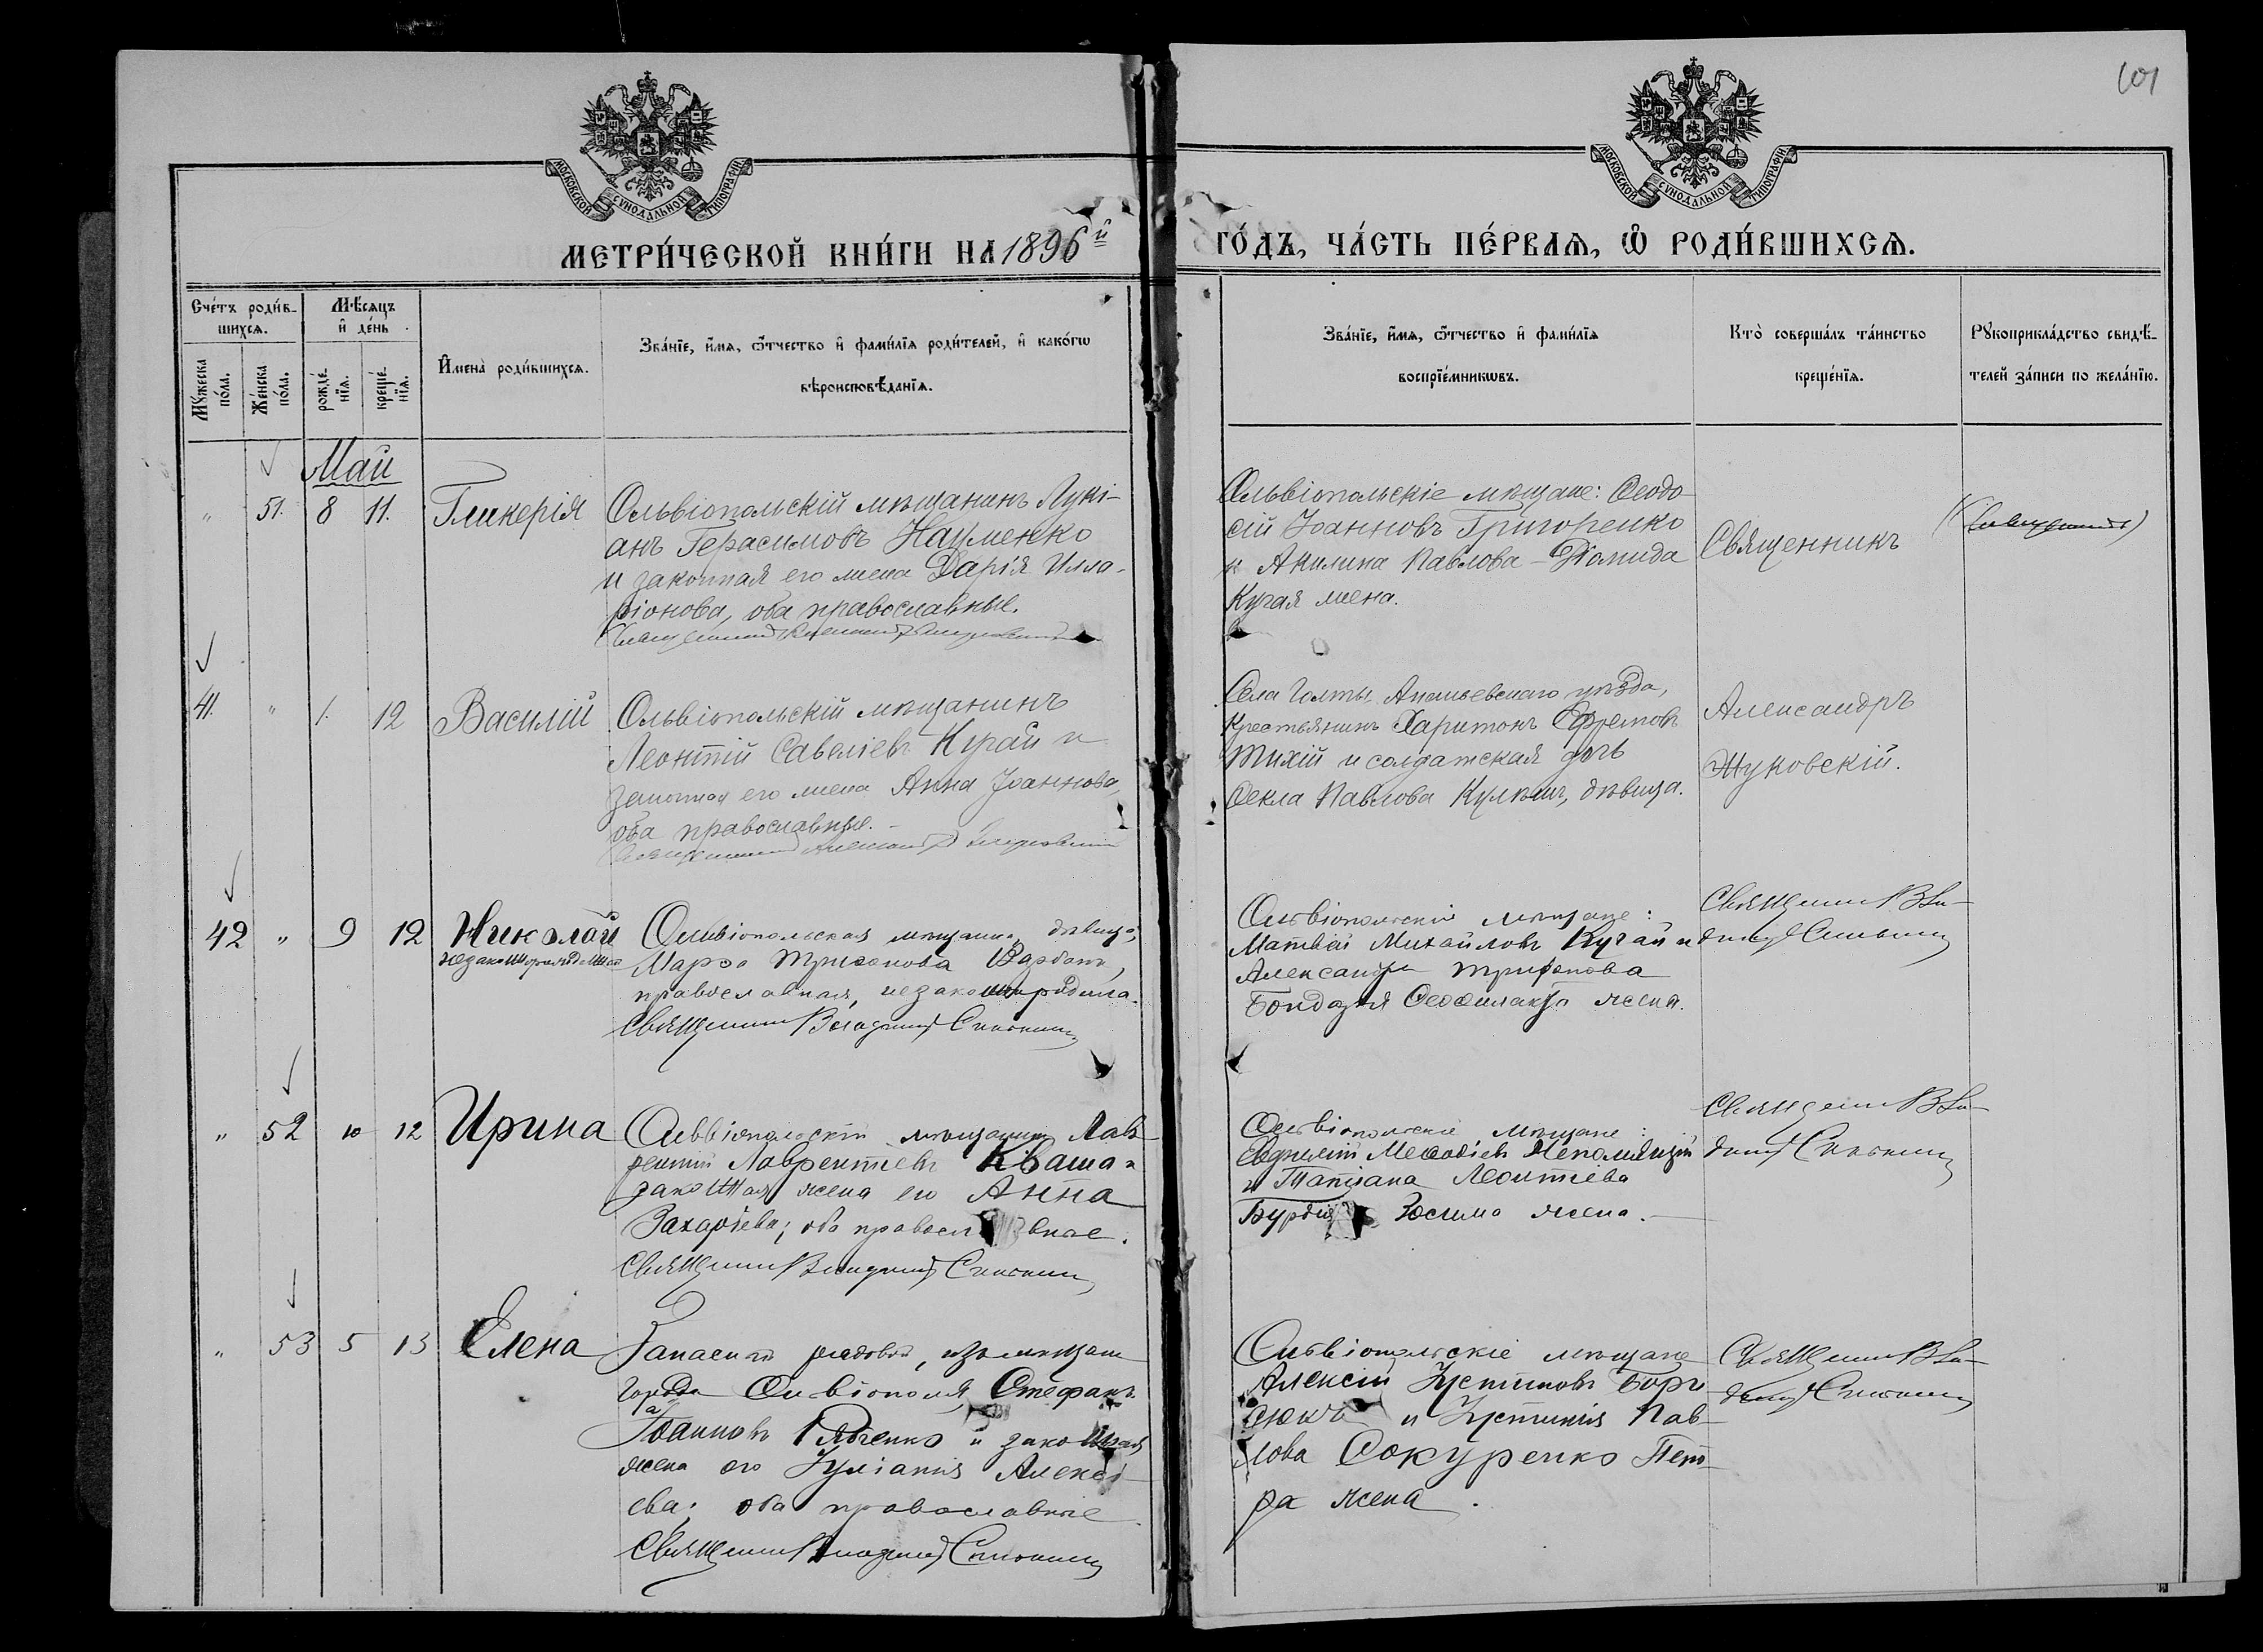 101
МОСКОВСКОЙ СѴНОДАЛЬНОЙ ТИПОГРАФІИ
МОСКОВСКОЙ СѴНОДАЛЬНОЙ ТИПОГРАФІИ
МЕТРИ́ЧЕСКОЙ КНИ́ГИ НА 1896й
ГО́ДЪ, ЧА́СТЬ ПЕ́РВАѦ, Ѽ РОДИ́ВШИХСѦ.
Сче́тъ роди́в-
шихсѧ.
Мꙋ́жеска по́ла.
Же́нска по́ла.
Мѣ́сѧцъ
и҆ де́нь
рожде́-
нїѧ.
креще́-
нїѧ.
И҆мена̀ роди́вшихсѧ.
Зва́нїе, и҆́мѧ, ѻ҆́тчество и҆ фами́лїѧ роди́телей, и҆ како́гѡ
вѣроисповѣ́данїѧ.
Зва́нїе, и҆́мѧ, ѻ҆́тчество и҆ фами́лїѧ
воспрїе́мникѡвъ.
Кто̀ соверша́лъ та́инство
креще́нїѧ.
Рꙋкоприкла́дство свидѣ́-
телей за́писи по жела́нїю.
Май
" 51. 8 11. Гликерія
Ольвіопольскій мѣщанинъ Лукі-
анъ Герасимовъ Науменко
и законная его жена Дарія Илла-
ріонова, оба православные.
Ольвіопольскіе мѣщане: Ѳеодо-
сій Іоанновъ Григоренко
и Акилина Павлова - Діомида
Кучая жена.
Священникъ
41. " 1. 12 Василій
Ольвіопольскій мѣщанинъ
Леонтій Савеліевъ Кучай и
законная его жена Анна Іоаннова,
оба православные.-
Села Голты, Ананьевскаго уѣзда,
крестьянинъ Харитонъ Ефремовъ
Тихій и солдатская дочь
Ѳекла Павлова дѣвица.
Александръ
Жуковскій.
42 " 9 12 Николай
незаконнорожденный
Ольвіопольская мѣщанка, дѣвица,
Марѳа Трифонова
православная, незаконнорождена.
Священникъ Владиміръ
Ольвіопольскіе мѣщане:
Матвій Михайловъ Кучай и
Александра Трифонова
Ѳеофилакта жена.
Священникъ Вла-
диміръ
" 52 10 12 Ирина
Ольвіопольскій мѣщанинъ Лав-
рентій Лаврентіевъ Кваша и
законная жена его Анна
Захаріева; оба православные.
Священникъ Владиміръ
Ольвіопольскіе мѣщане:
Меѳодіевъ
и Татіана Леонтіева
Зосима жена.-
Священникъ Вла-
диміръ
" 53 5 13 Елена
Запасный рядовой, изъ мѣщанъ
города Ольвіополя, Стефанъ
Іоанновъ Рябченко и законная
жена его Іуліанія Алексі-
ева; оба православные
Священникъ Владиміръ
Ольвіопольскіе мѣщане
Алексій Іустиновъ
и Іустинія Пав-
лова Сокуренко Пет-
ра жена.
Священникъ Вла-
диміръ